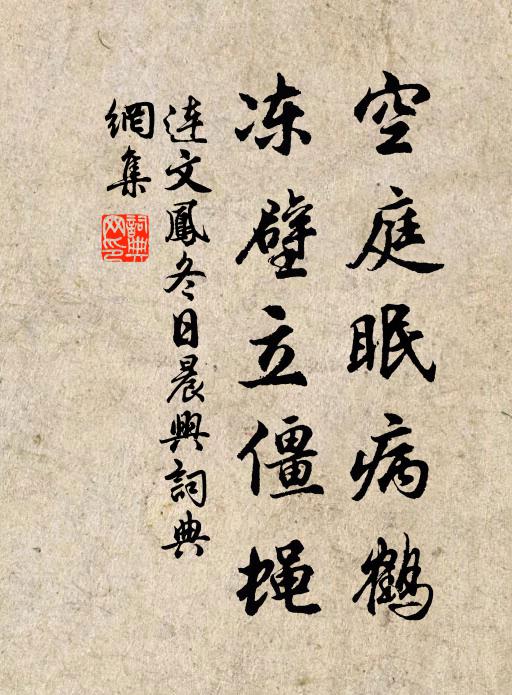 空庭眠病鹤
冻壁立僵蝇
连文鳳冬日晨興詞典
網集
詞典
网印